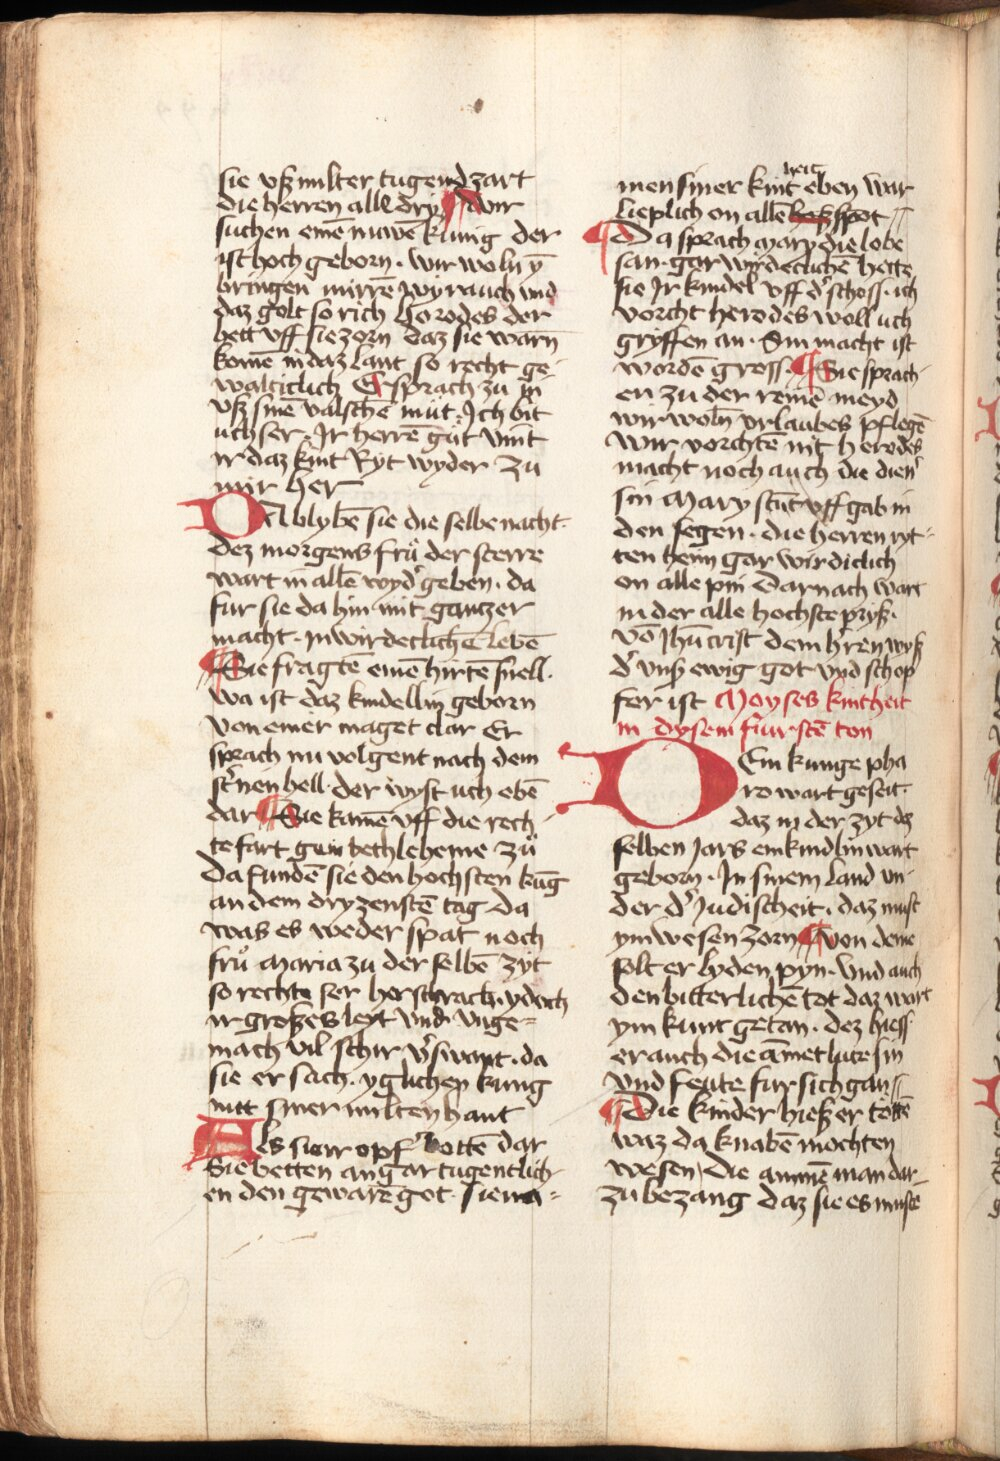 sie vsz milter tugend zart
die herren alle dry ¶ wir
suchen einē nuwē kunig der
ist hoch geborn · wir woln ȳ
bringen mirrē wyrauch vnd
daz golt so rich Herodes der
hett vff sie zorn daz sie warn
komē in daz lant so recht ge-
walticlich Er sprach zu in
vsz sinē valschē mut · Ich bit
uch ser · Ir herrē gůt vint
ir daz kint Ryt wyder zu
mir her
DA blybē sie die selbe nacht ·
dez morgens frů der sterre
wart in allē wyd' geben · da
fur sie da hin mit gantzer
macht · in wirdeclichē lebē
¶ Sie fragtē einē hirtē snell ·
wa ist daz kindellin geborn
von einer maget clar Er
sprach nu volgent nach dem
st'nen hell · der wyst uch ebē
dar ¶ Sie kamē vff die rech-
te fart gein bethleheme zů
Da fundē sie den hochsten kūg
an dem dryzenstē tag da
was es weder spat noch
frů Maria zu der selbē zyt
so rechte ser herschrack · ydoch
ir groszes leyt vnd vnge=
mach vil schir v'swant · da
sie ersach · yglichen kung
mitt siner milten hant
Als sie ir opf' bottē dar
Sie betten an gar tugentlich-
en den gewarē got · sie na=
men siner kintheit eben war
lieplich on allē spot
¶ Da sprach Mary die lobe
san · gar wirdeclichē hette
sie Ir kindel vff d' schoss · ich
vorcht herodes woll uch
gryffen an · Sin macht ist
wordē gross · ¶ Sie sprach-
en zu der reinē meyd
wir woln vrlaubes pflegē
wir vorchtē nit herodes
macht noch auch die dien'
sin Mary stūt vff gab in
den segen · die herren ryt-
ten heim gar wirdiclich
on alle pin Darnach wart
in der alle hochste prysz ·
vō Jhū crist dem h'ren wysz
d' vnsz ewig got vnd schop
fer ist Moyses kintheit
in dysem fursтē ton
DEm kunge pha
ro wart geseit ·
daz in der zyt dez
selben Jars ein kindlin wart
geborn · In sinem land vn-
der d' Judischeit · daz must
ym wesen zorn ¶ von deme
solt er lyden pyn · vnd auch
den bitterlichē tot daz wart
ym kunt getan · dez hiess
er auch die āmet lute sin
vnd fente fur sich gan
¶ Die kinder hiesz er tottē
waz da knabē mochten
wesen Die ammē man dar-
zu bezang daz sie es mustē